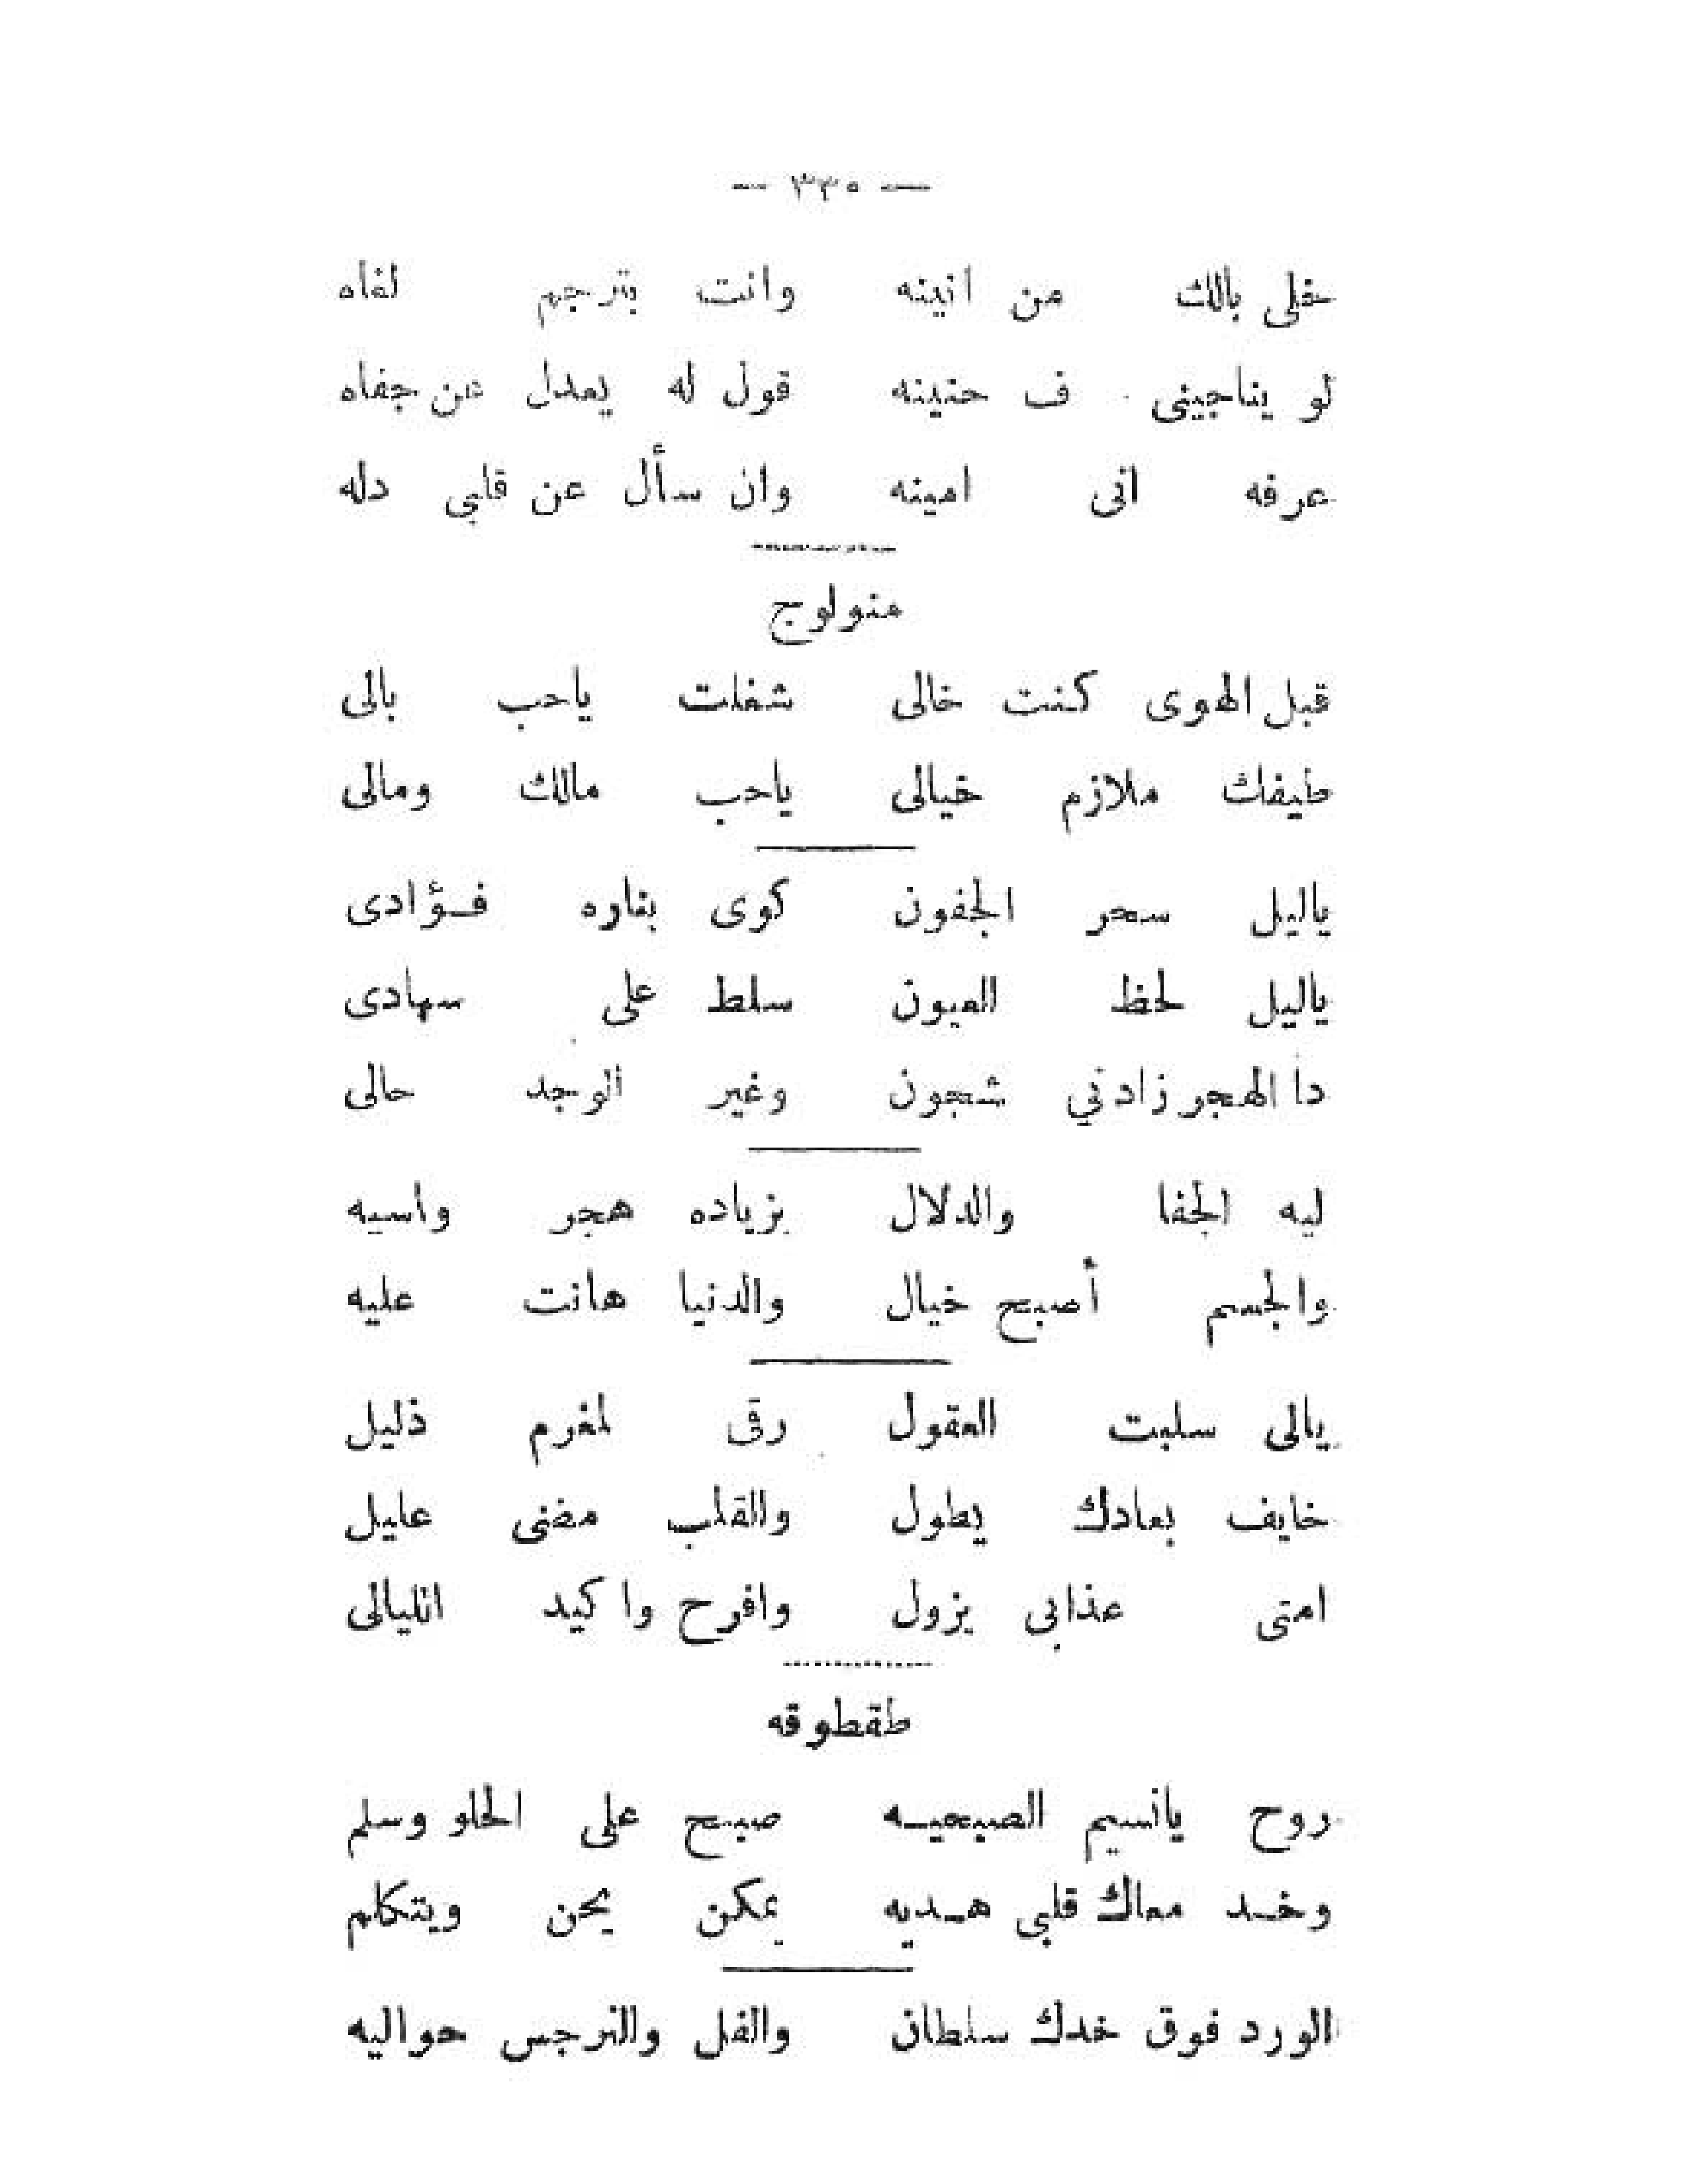 — ٣٣٥ —
خلى بالك من انينه وانت بترجم لغاه
لو يناجينى ف حنينه قول له يعدل عن جفاه
عرفه انى امينه وان سأل عن قلبي دله
منولوج
قبل الهوى كنت خالى شغلت ياحب بالى
طيفك ملازم خيالى ياحب مالك ومالى
ياليل سحر الجفون كوى بناره فـؤادى
ياليل لحظ العيون سلط على سهادى
دا الهجر زادني شجون وغير الوجد حالى
ليه الجفا والدلال بزياده هجر واسيه
والجسم أصبح خيال والدنيا هانت عليه
يالى سلبت العقول رقى لمغرم ذليل
خايف بعادك يطول والقلب مضنى عليل
امتى عذابى يزول وافرح واكيد الليالى
طقطوقه
روح يانسيم الصبحيـه صبح على الحلو وسلم
وخـد معاك قلبى هـديه يمكن يحن ويتكلم
الورد فوق خدك سلطان والفل والنرجس حواليه